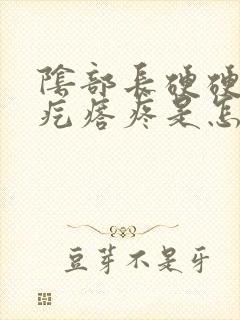 陰部長硬硬
疙瘩疼是怎
豆芽不是牙